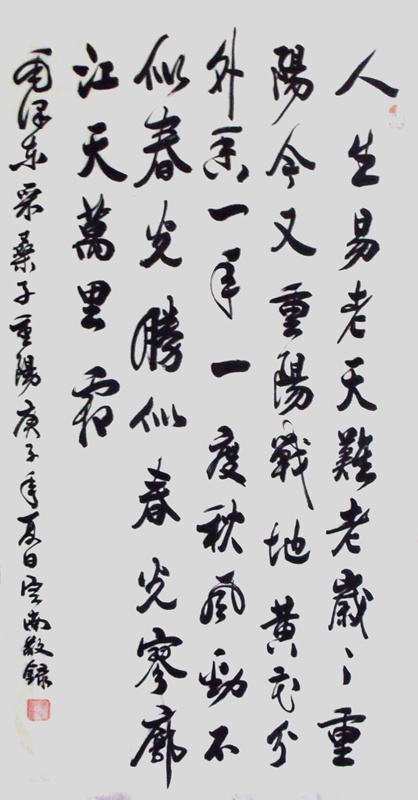 人生易老天難老歲〻重
陽今又重陽戰地黃花分
外香一年一度秋風勁不
似春光勝似春光寥廓
江天萬里霜
毛澤東采桑子重陽庚子年夏日定南敬錄